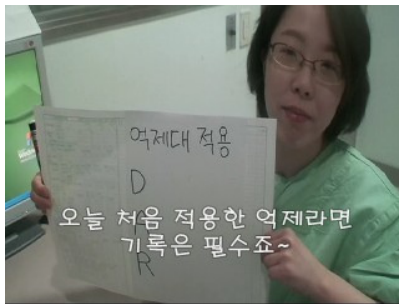 억제대 적용
D
A
R
오늘 처음 적용한 억제라면
기록은 필수죠~